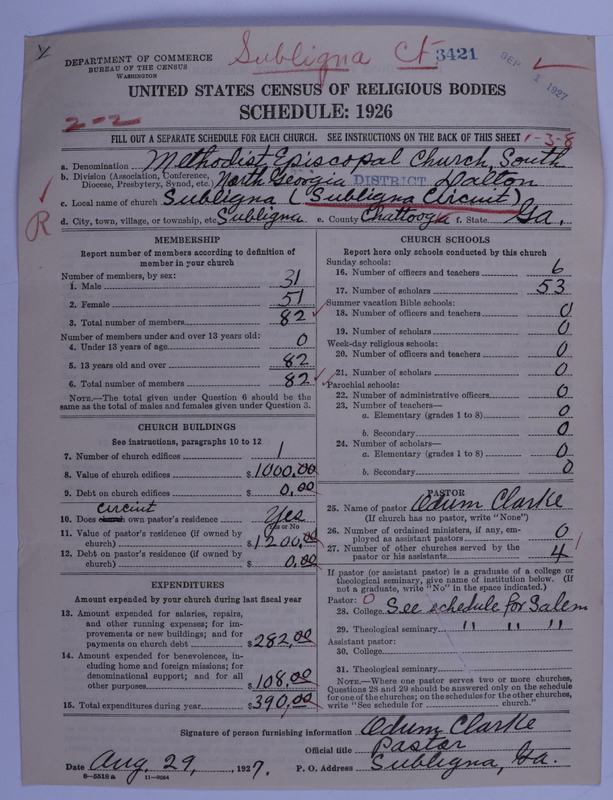 Subligna Ct 3421
SEP 1 1927
DEPARTMENT OF COMMERCE
BUREAU OF THE CENSUS
WASHINGTON
UNITED STATES CENSUS OF RELIGIOUS BODIES
SCHEDULE: 1926
2-2
FILL OUT A SEPARATE SCHEDULE FOR EACH CHURCH. SEE INSTRUCTIONS ON THE BACK OF THIS SHEET 1-3-8
a. Denomination Methodist Episcopal Church, South
b. Division (Association, Conference, Diocese, Presbytery, Synod, etc.) North Georgia DISTRICT Dalton
c. Local name of church Subligna (Subligna Circuit)
d. City, town, village, or township, etc. Subligna e. County Chattooga f. State Ga.
R
MEMBERSHIP
Report number of members according to definition of
member in your church
Number of members, by sex:
1. Male 31
2. Female 51
3. Total number of members 82
Number of members under and over 13 years old:
4. Under 13 years of age 0
5. 13 years old and over 82
6. Total number of members 82
NOTE.—The total given under Question 6 should be the
same as the total of males and females given under Question 3.
CHURCH BUILDINGS
See instructions, paragraphs 10 to 12
7. Number of church edifices 1
8. Value of church edifices $1000.00
9. Debt on church edifices $0.00
circuit
10. Does church own pastor's residence? Yes
Yes or No
11. Value of pastor's residence (if owned by
church) $1200.00
12. Debt on pastor's residence (if owned by
church) $0.00
EXPENDITURES
Amount expended by your church during last fiscal year
13. Amount expended for salaries, repairs,
and other running expenses; for im-
provements or new buildings; and for
payments on church debt $282.00
14. Amount expended for benevolences, in-
cluding home and foreign missions; for
denominational support; and for all
other purposes $108.00
15. Total expenditures during year $390.00
CHURCH SCHOOLS
Report here only schools conducted by this church
Sunday schools:
16. Number of officers and teachers 6
17. Number of scholars 53
Summer vacation Bible schools:
18. Number of officers and teachers 0
19. Number of scholars 0
Week-day religious schools:
20. Number of officers and teachers 0
21. Number of scholars 0
Parochial schools:
22. Number of administrative officers 0
23. Number of teachers—
a. Elementary (grades 1 to 8) 0
b. Secondary 0
24. Number of scholars—
a. Elementary (grades 1 to 8) 0
b. Secondary 0
PASTOR
25. Name of pastor Odum Clarke
(If church has no pastor, write "None")
26. Number of ordained ministers, if any, em-
ployed as assistant pastors 0
27. Number of other churches served by the
pastor or his assistants 4
If pastor (or assistant pastor) is a graduate of a college or
theological seminary, give name of institution below. (If
not a graduate, write "No" in the space indicated.)
Pastor: 0
28. College See schedule for Salem
29. Theological seminary " " "
Assistant pastor:
30. College
31. Theological seminary
NOTE.—Where one pastor serves two or more churches,
Questions 28 and 29 should be answered only on the schedule
for one of the churches; on the schedules for the other churches,
write "See schedule for church."
Signature of person furnishing information Odum Clarke
Official title Pastor
Date Aug. 29, 1927. P. O. Address Subligna, Ga.
8-5518a 11-9264